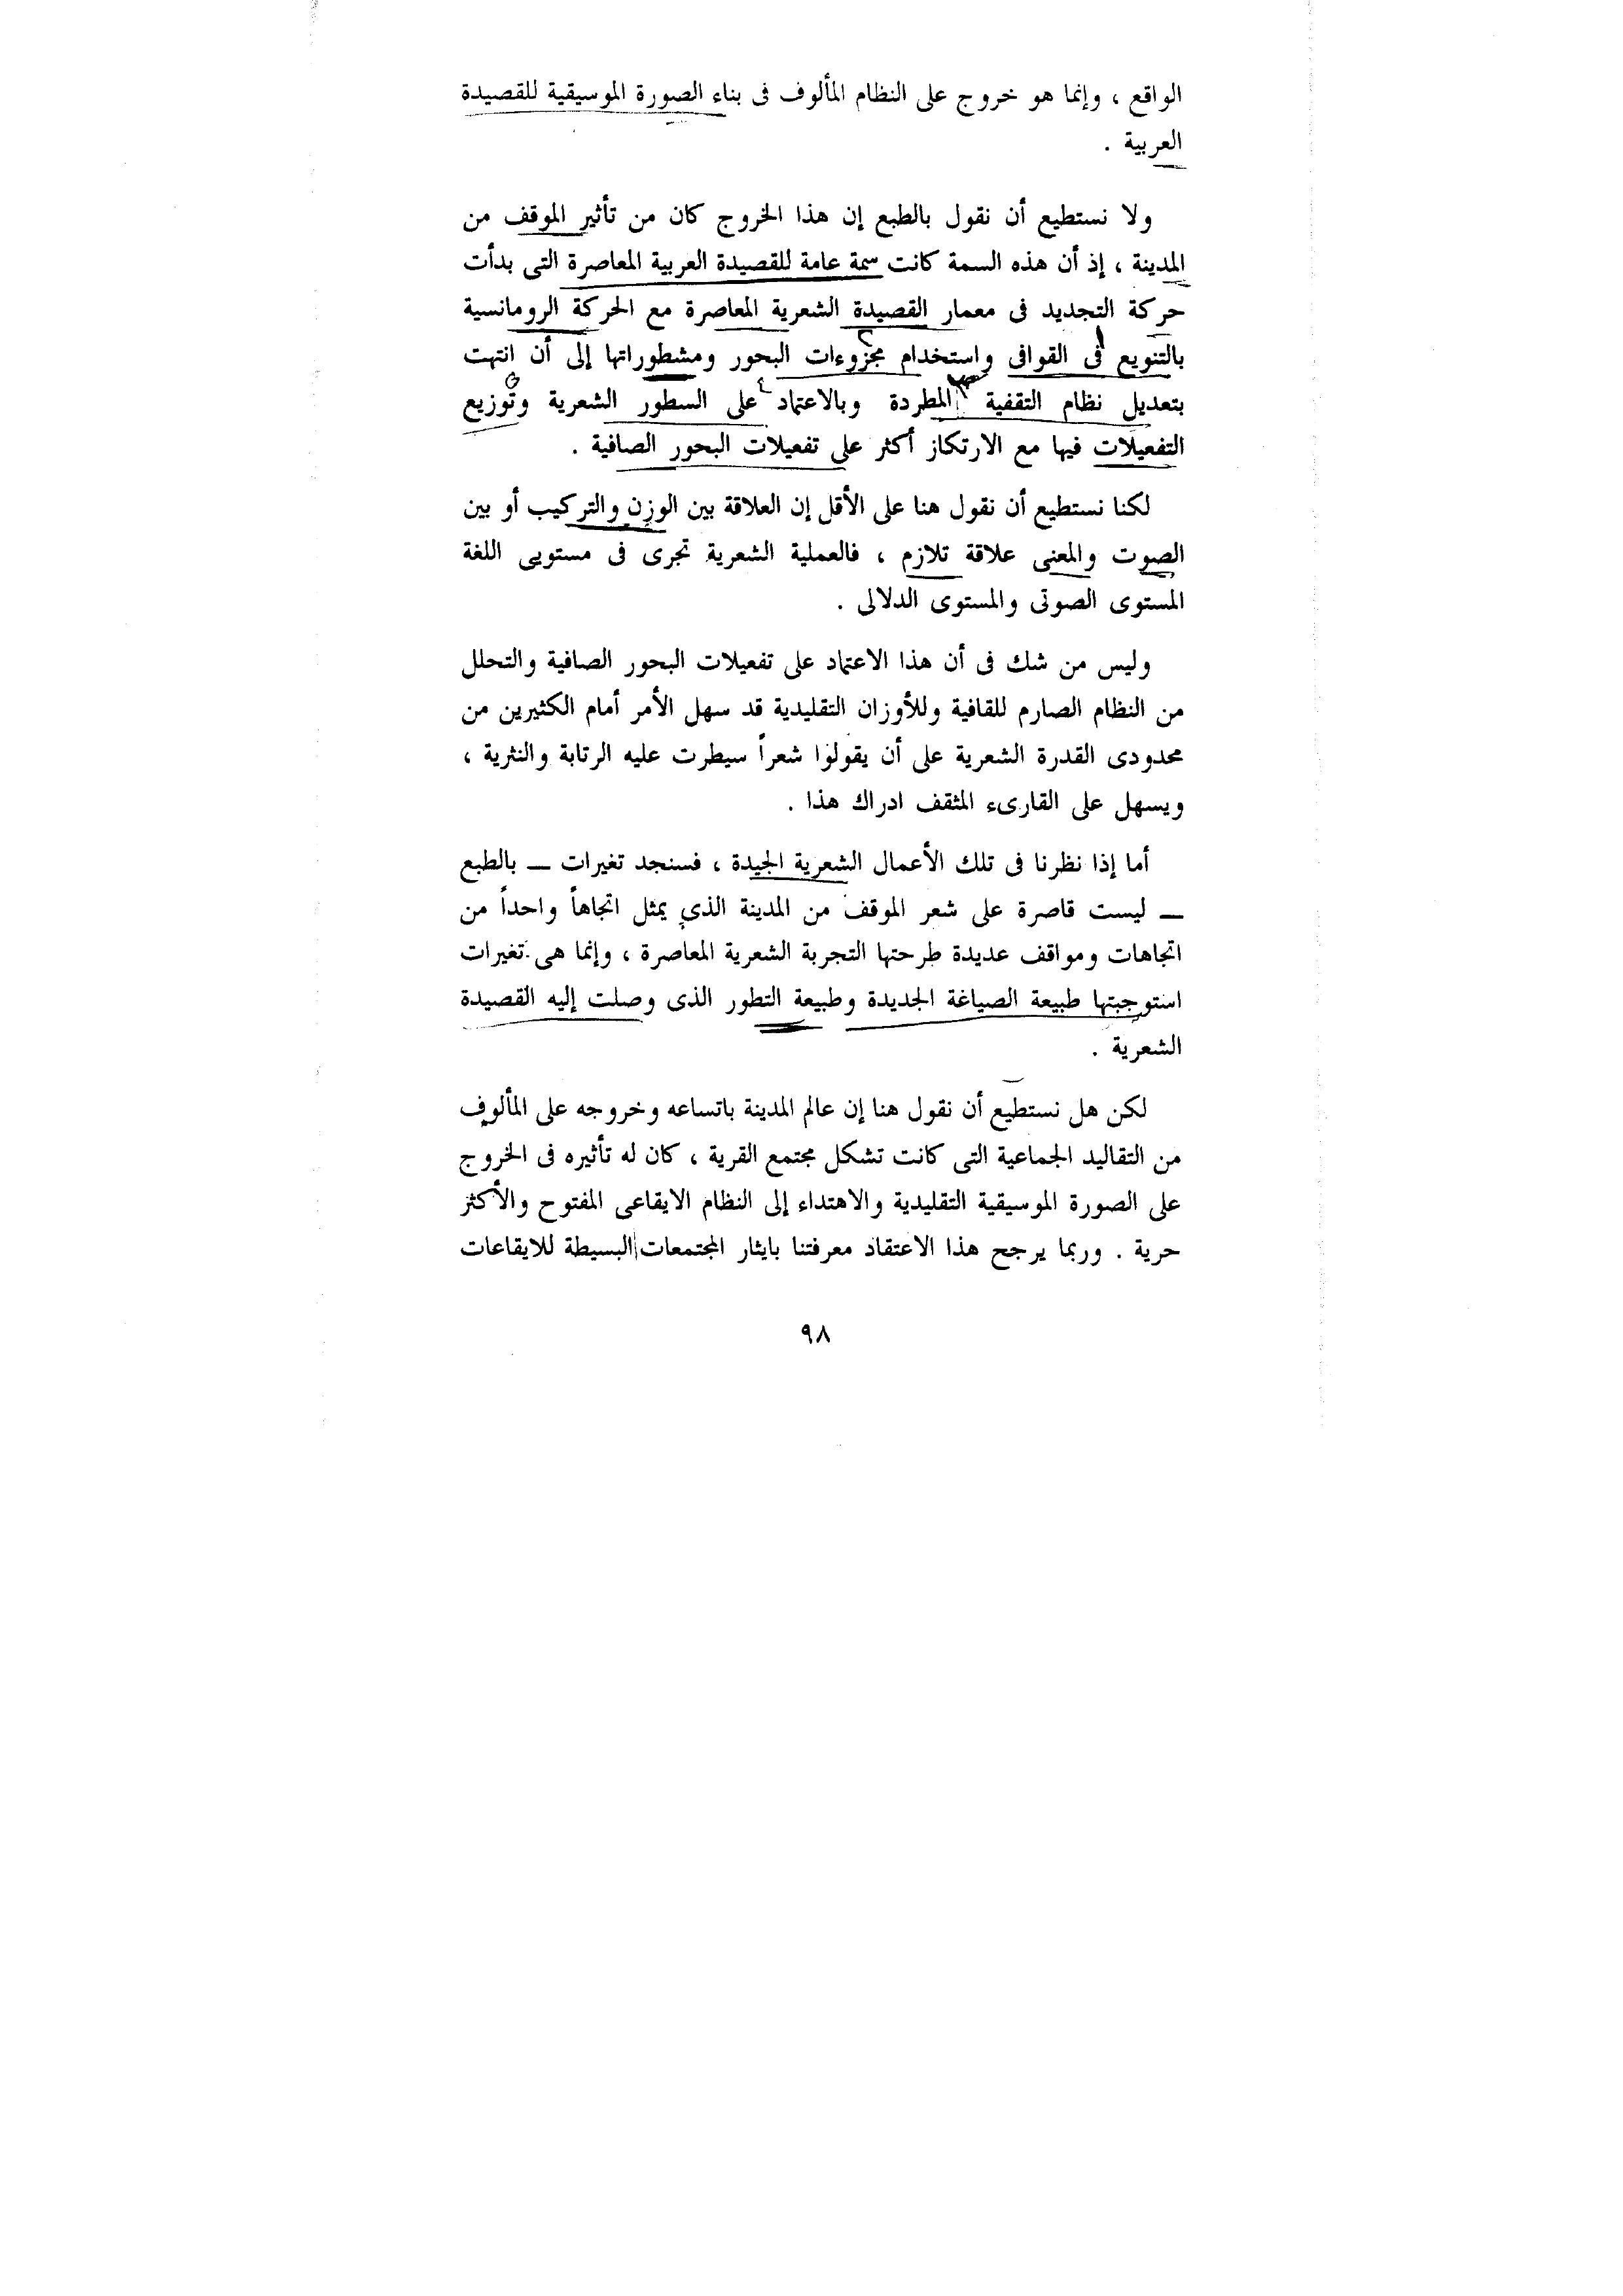 الواقع ، وإنما هو خروج على النظام المألوف فى بناء الصورة الموسيقية للقصيدة
العربية .
ولا نستطيع أن نقول بالطبع إن هذا الخروج كان من تأثير الموقف من
المدينة ، إذ أن هذه السمة كانت سمة عامة للقصيدة العربية المعاصرة التى بدأت
حركة التجديد فى معمار القصيدة الشعرية المعاصرة مع الحركة الرومانسية
بالتنويع فى القوافى واستخدام مجزوءات البحور ومشطوراتها إلى أن انتهت
بتعديل نظام التقفية المطردة وبالاعتماد على السطور الشعرية وتوزيع
التفعيلات فيها مع الارتكاز أكثر على تفعيلات البحور الصافية .
لكنا نستطيع أن نقول هنا على الأقل إن العلاقة بين الوزن والتركيب أو بين
الصوت والمعنى علاقة تلازم ، فالعملية الشعرية تجرى فى مستويى اللغة
المستوى الصوتى والمستوى الدلالى .
وليس من شك فى أن هذا الاعتماد على تفعيلات البحور الصافية والتحلل
من النظام الصارم للقافية وللأوزان التقليدية قد سهل الأمر أمام الكثيرين من
محدودى القدرة الشعرية على أن يقولوا شعراً سيطرت عليه الرتابة والنثرية ،
ويسهل على القارىء المثقف ادراك هذا .
أما إذا نظرنا فى تلك الأعمال الشعرية الجيدة ، فسنجد تغيرات — بالطبع
— ليست قاصرة على شعر الموقف من المدينة الذي يمثل اتجاهاً واحداً من
اتجاهات ومواقف عديدة طرحتها التجربة الشعرية المعاصرة ، وإنما هى تغيرات
استوجبتها طبيعة الصياغة الجديدة وطبيعة التطور الذى وصلت إليه القصيدة
الشعرية .
لكن هل نستطيع أن نقول هنا إن عالم المدينة باتساعه وخروجه على المألوف
من التقاليد الجماعية التى كانت تشكل مجتمع القرية ، كان له تأثيره فى الخروج
على الصورة الموسيقية التقليدية والاهتداء إلى النظام الايقاعى المفتوح والأكثر
حرية . وربما يرجح هذا الاعتقاد معرفتنا بايثار المجتمعات البسيطة للايقاعات
٩٨